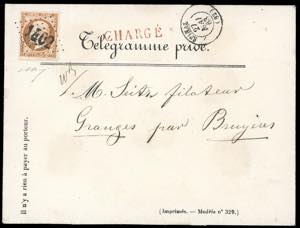 CHARGÉ
Télégramme privé.
M. Seitz filateur
Granges par Bruyères
il n'y a rien à payer au porteur.
(Imprimés. — Modèle n° 329.)